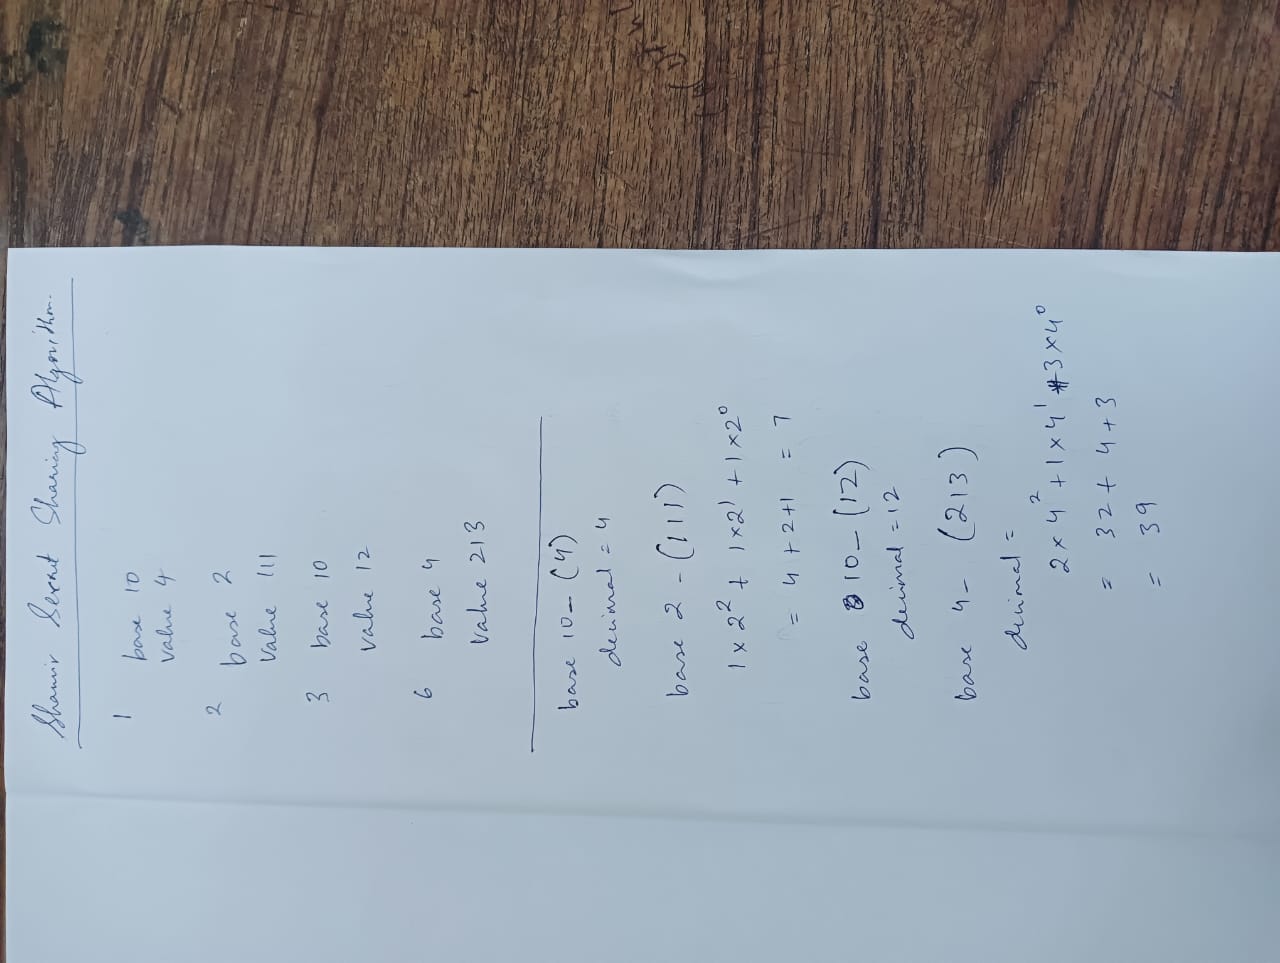 Shamir Secret Sharing Algorithm.
1 base 10
value 4
2 base 2
Value 111
3 base 10
value 12
6 base 4
Value 213
base 10 - (4)
decimal = 4
base 2 - (111)
1 x 2² + 1x2¹ + 1x2⁰
= 4 + 2+1 = 7
base 10 - (12)
decimal = 12
base 4 - (213)
decimal =
2x 4² + 1 x 4¹ + 3 x 4⁰
= 32 + 4 + 3
= 39